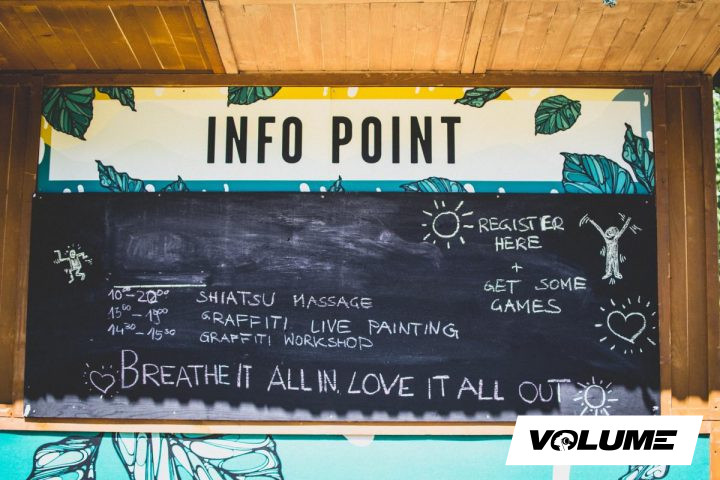 INFO POINT
REGISTER
HERE
+
GET SOME
GAMES
10⁰⁰-20⁰⁰ SHIATSU MASSAGE
15⁰⁰-19⁰⁰ GRAFFITI LIVE PAINTING
14³⁰-15³⁰ GRAFFITI WORKSHOP
BREATHE IT ALL IN, LOVE IT ALL OUT
VOLUME